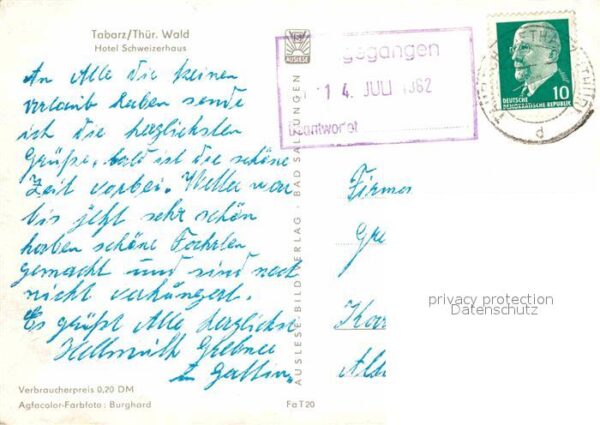 Tabarz/Thür. Wald
Hotel Schweizerhaus
An Alle die keinen
urlaub haben sende
ich die herzlichsten
Grüße, bald ist die schöne
Zeit vorbei. Wetter war
bis jetzt sehr schön
haben schöne Fachrten
gemacht und sind noch
nicht verhungert.
Es grüßt Alle herzlichst
Hellmuth
u Gattin
Verbraucherpreis 0,20 DM
Agfacolor-Farbfoto: Burghard
AUSLESE
AUSLESE-BILD-VERLAG · BAD SALZUNGEN
FaT20
gegangen
14. JULI 1962
10
DEUTSCHE
DEMOKRATISCHE REPUBLIK
d
Firma
Gre
privacy protection
Datenschutz